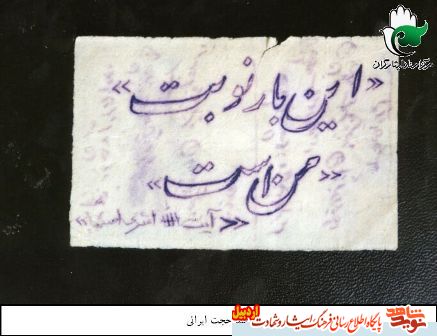 مرکز اسناد ایثارگران
«این بار نوبت»
«من است»
پایگاه اطلاع رسانی فرهنگ ایثار و شهادت اردبیل
نوید شاهد
حجت ایرانی